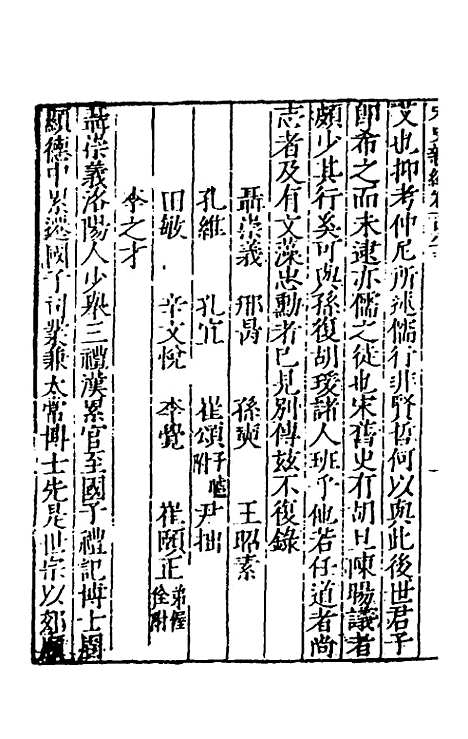 艾也抑考仲尼所述儒行非賢哲何以與此後世君子
即希之而未逮亦儒之徒也宋舊史有胡旦陳暘議者
頗少其行奚可與孫復胡瑗諸人班乎他若任道者尚
志者及有文藻忠勳者已見別傳兹不復錄
聶崇義 邢昺 孫奭 王昭素
孔維 孔宜 崔頌子曮附 尹拙
田敏 辛文悅 李覺 崔頤正弟偓佺附
李之才
聶崇義洛陽人少舉三禮漢累官至國子禮記博士周
顯德中累遷國子司業兼太常博士先是世宗以郊廟